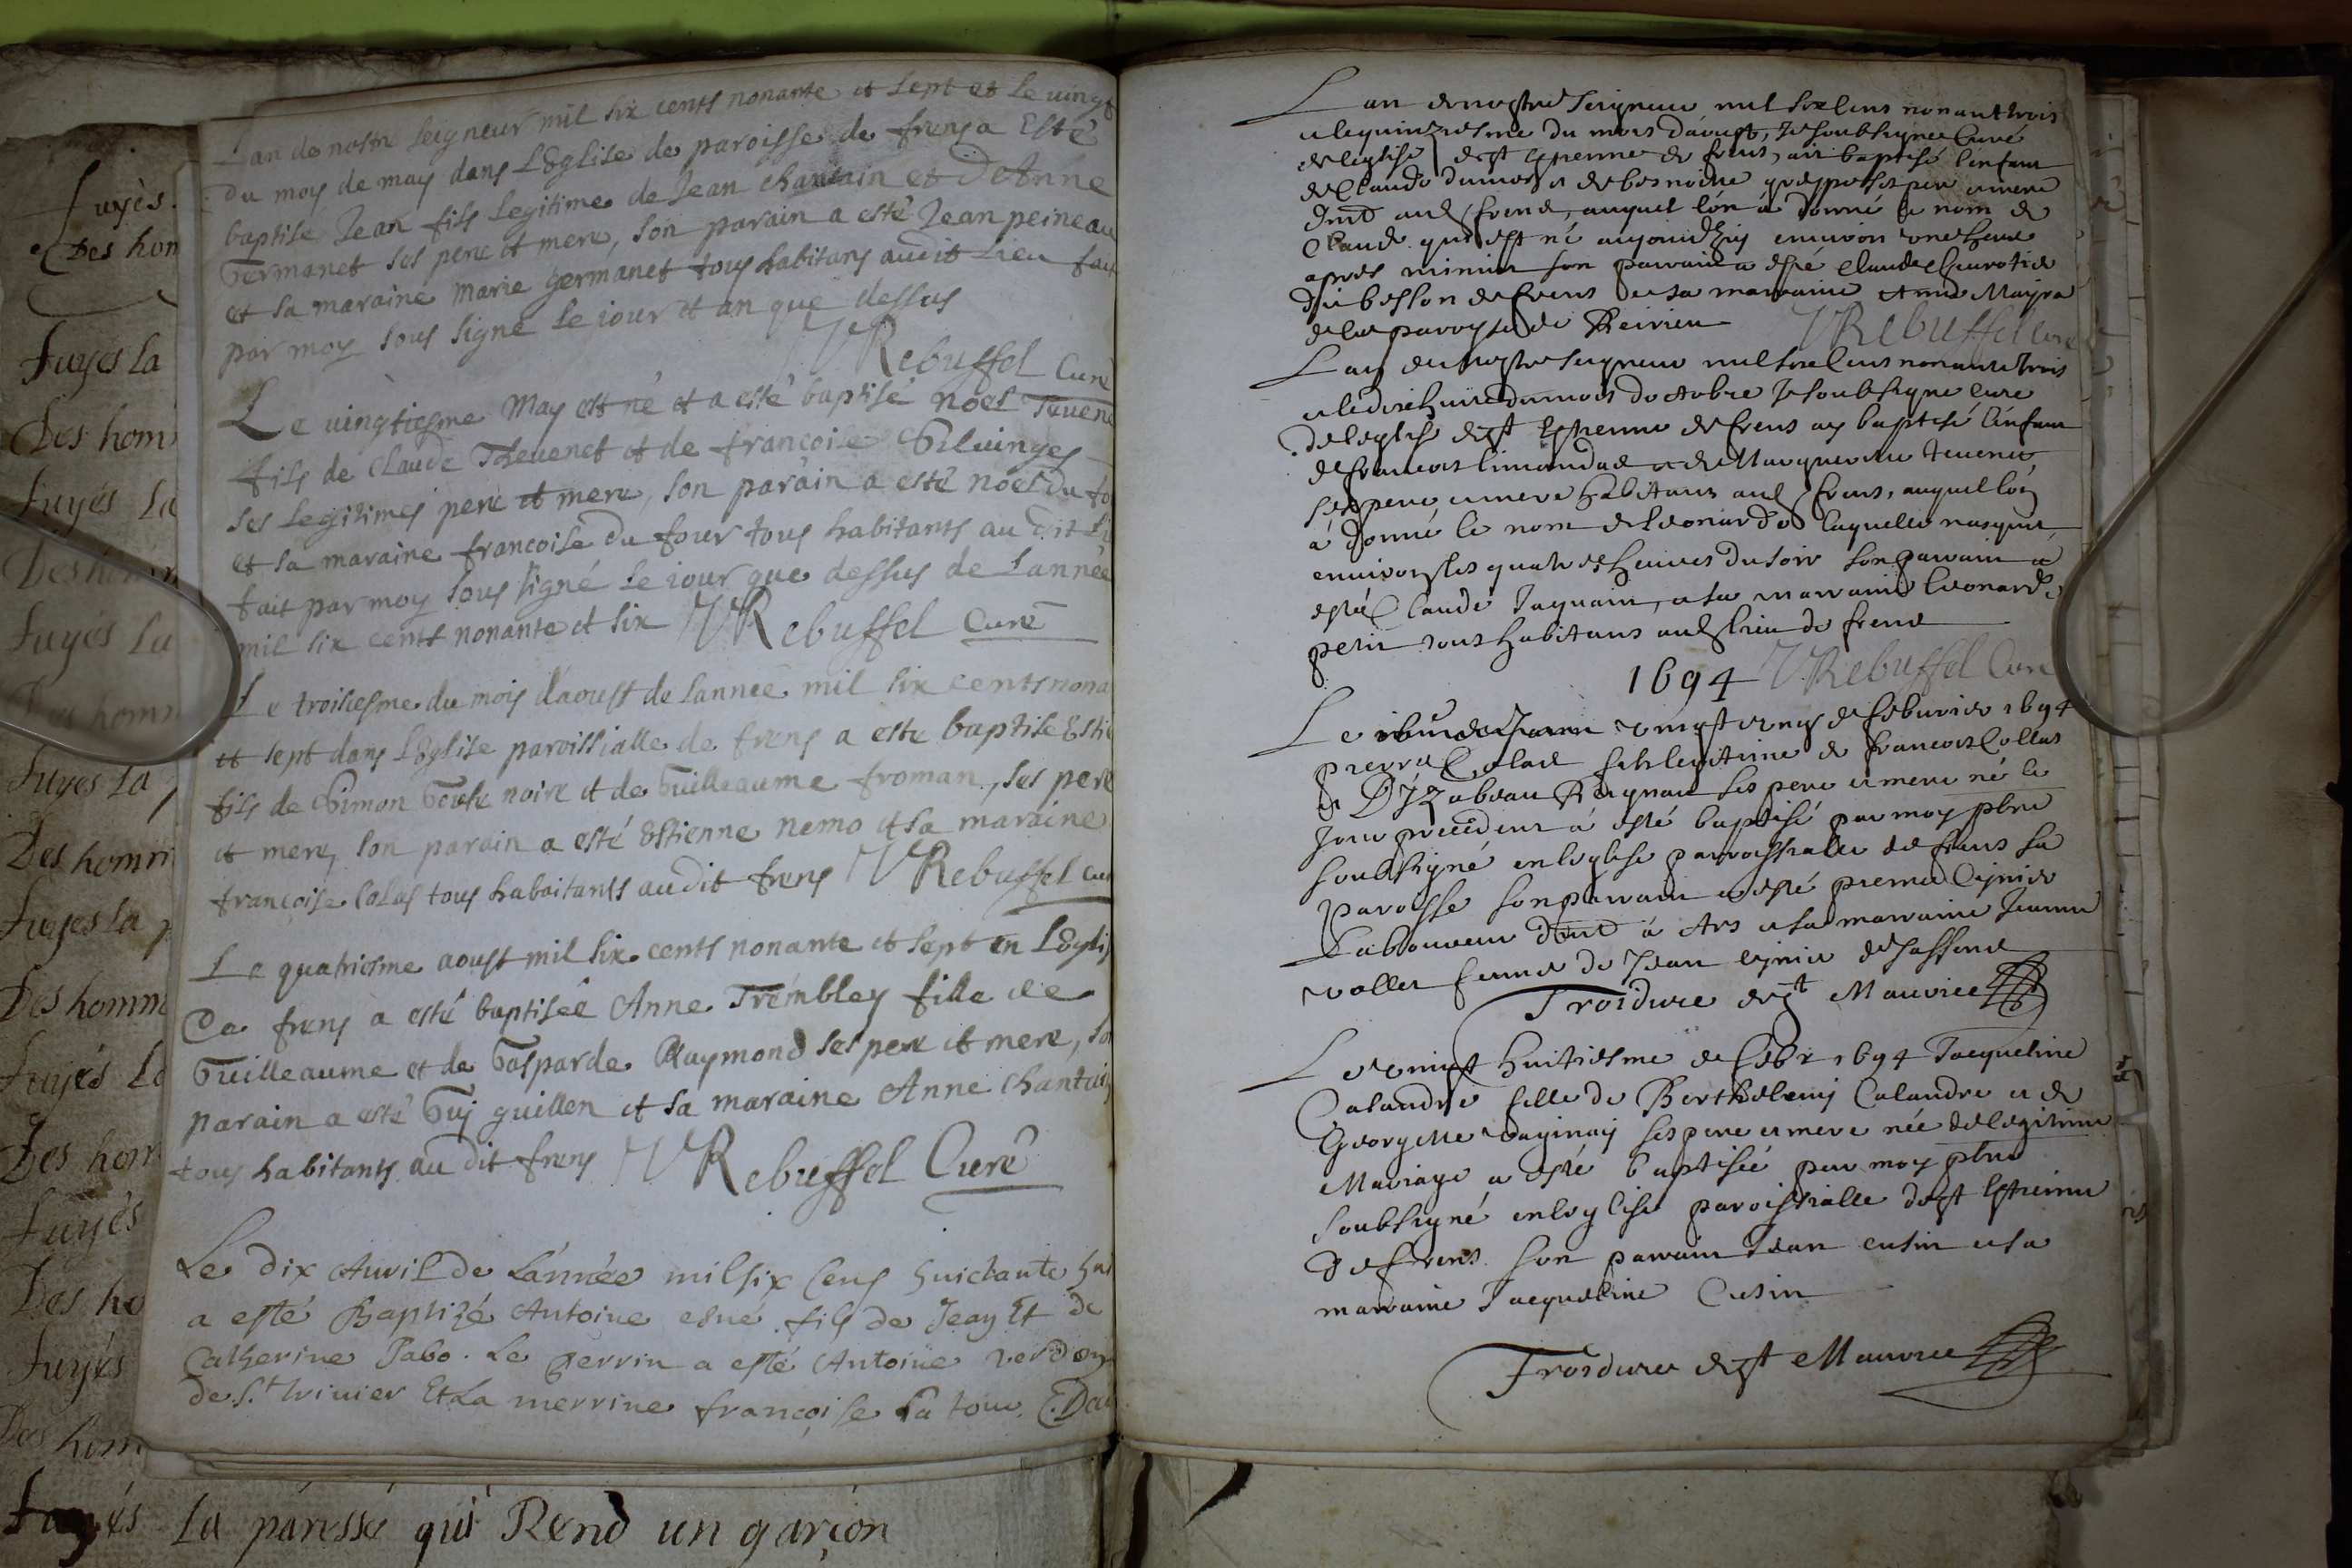 Lan de nostre seigneur mil six cents nonante et sept et le vingt
du moy de may dans LEglise de paroisse de frens a Esté
baptise Jean fils Legitime de Jean chantain et D'Anne
Germanet ses pere et mere, son parain a esté Jean peineau
et sa maraine Marie germanet tous habitans audit Lieu fait
par moy sous signé le jour et an que dessus
VRebuffel Curé
Le vingtiesme May est né et a esté baptisé noel Tevene
fils de Claude Thevenet et de francoise Giluinges
ses Legitimes pere et mere, son parain a esté noel du fo
et sa maraine francoise du four tous habitants au dit Li
fait par moy sous signé le jour que dessus de Lannée
mil six cents nonante et six VRebuffel Curé
Le troisiesme du mois daoust de Lannée mil six cents nona
et sept dans LEglise paroissialle de frens a este baptise Esti
fils de Simon Goute noire et de Guilleaume froman, ses pere
et mere, son parain a esté Estienne nemo et sa maraine
françoise Colas tous habaitants audit frens VRebuffel Cur
Le quatriesme aoust mil six cents nonante et sept en LEglis
De frens a esté baptiseé Anne Trembley fille de
Guilleaume et de Gasparde Raymond ses pere et mere, so
parain a esté Guy guillen et sa maraine Anne Chantain
tous habitants au dit frens VRebuffel Curé
Le dix Auril de Lánnée mil six Cens huictante hui
a esté Baptizé Antoine esné fils de Jean Et de
Catherine Pabo. Le perrin a esté Antoine verdon
de S.t triuier Et La merrine françoise La tour
Lan de nostre Seigneur mil six Cens nonant trois
et le quinziesme du mois daoust, Je soubsigné Curé
de leglise de st Estienne de frens, ai baptisé lenfant
de Claude et de ses pere et mere
aud frens, auquel lon a donné le nom de
Claude qui est né aujourdhuy environ une heure
apres minuit son parrain a esté Claude
dit besson de frens et sa marraine Anne Mayra
de la paroysse de Reirieu VRebuffel Cure
Lan de nostre seigneur mil six Cens nonante trois
et le dix huit du mois doctobre Je soubsigné Cure
de leglise de st Estienne de frens ay baptisé lenfant
de francois limandas et de Marguerite Tevenet
ses pere et mere habitans aud frens, auquel lon
à donné le nom de Leonarde laquelle nasquit
environ les quatres heures du soir son parrain a
esté Claude Jaquain, et sa marraine Leonarde
petit tous habitans aud lieu de frens
1694 VRebuffel Cure
Le vingt un de feburier 1694
pierre Colas fils legitime de francois Collas
et Dyzabeau Reignau ses pere et mere né le
Jour precedent à esté baptisé par moy pbre
soubsigné en leglise parroissialle de frens sa
paroisse son parrain a esté pierre Cynier
Labouveur à Ars et sa marraine Jeanne
vollet femme de Jean Cynier de
Froidure de st Maurice
Le vingt huitiesme de febr 1694 Jacqueline
Calandre fille de Berthelemy Calandre et de
Georgette Vaginay ses pere et mere née de legitime
Mariage a esté baptiseé par moy pbre
soubsigné en leglise paroissialle de st Estienne
de frens son parrain Jean cusin et sa
marraine Jacqueline Cusin
Froidure de st Maurice
Fuyés
Des hom
Fuyés La
Des hom
Fuyés La
Des homm
Fuyés La
Des homm
Fuyés La
Des homm
Fuyés La p
Des homm
Fuyés La
Des hom
Fuyés
Des ho
Fuyés
Des hom
Fuyés La páressé qui Rend un garçon